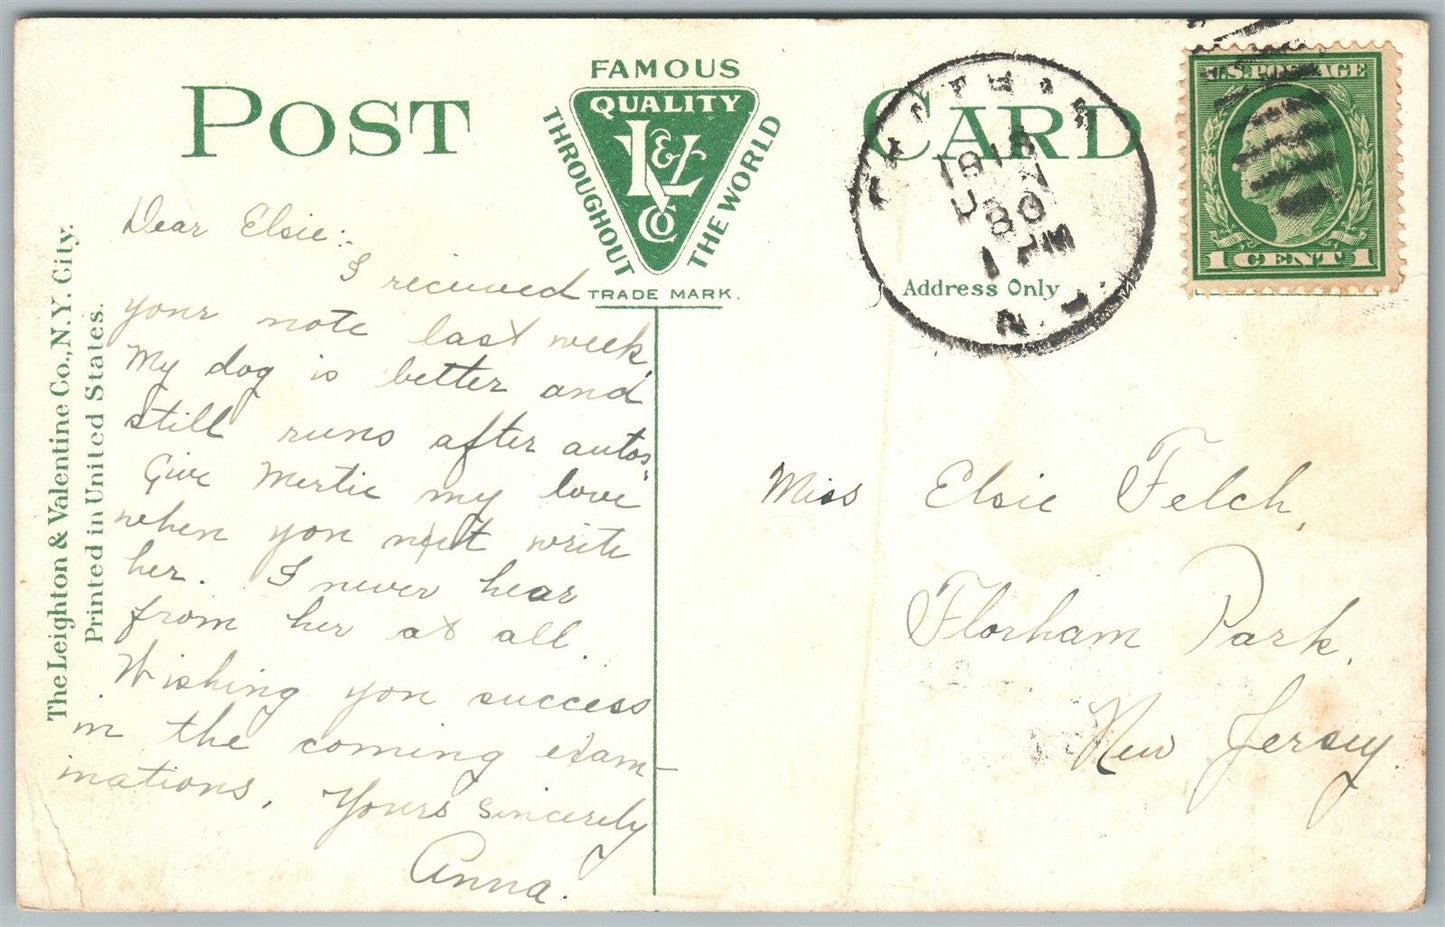 POST CARD
FAMOUS
QUALITY
THROUGHOUT
THE WORLD
L & V
CO
TRADE MARK.
Address Only
U.S. POSTAGE
1 CENT 1
1 PM
N. J.
The Leighton & Valentine Co., N.Y. City.
Printed in United States.
Dear Elsie:-
I received
your note last week.
My dog is better and
still runs after autos.
Give Mertie my love
when you next write
her. I never hear
from her at all.
Wishing you success
in the coming exam-
inations. Yours sincerely
Anna.
Miss Elsie Felch,
Florham Park,
New Jersey.